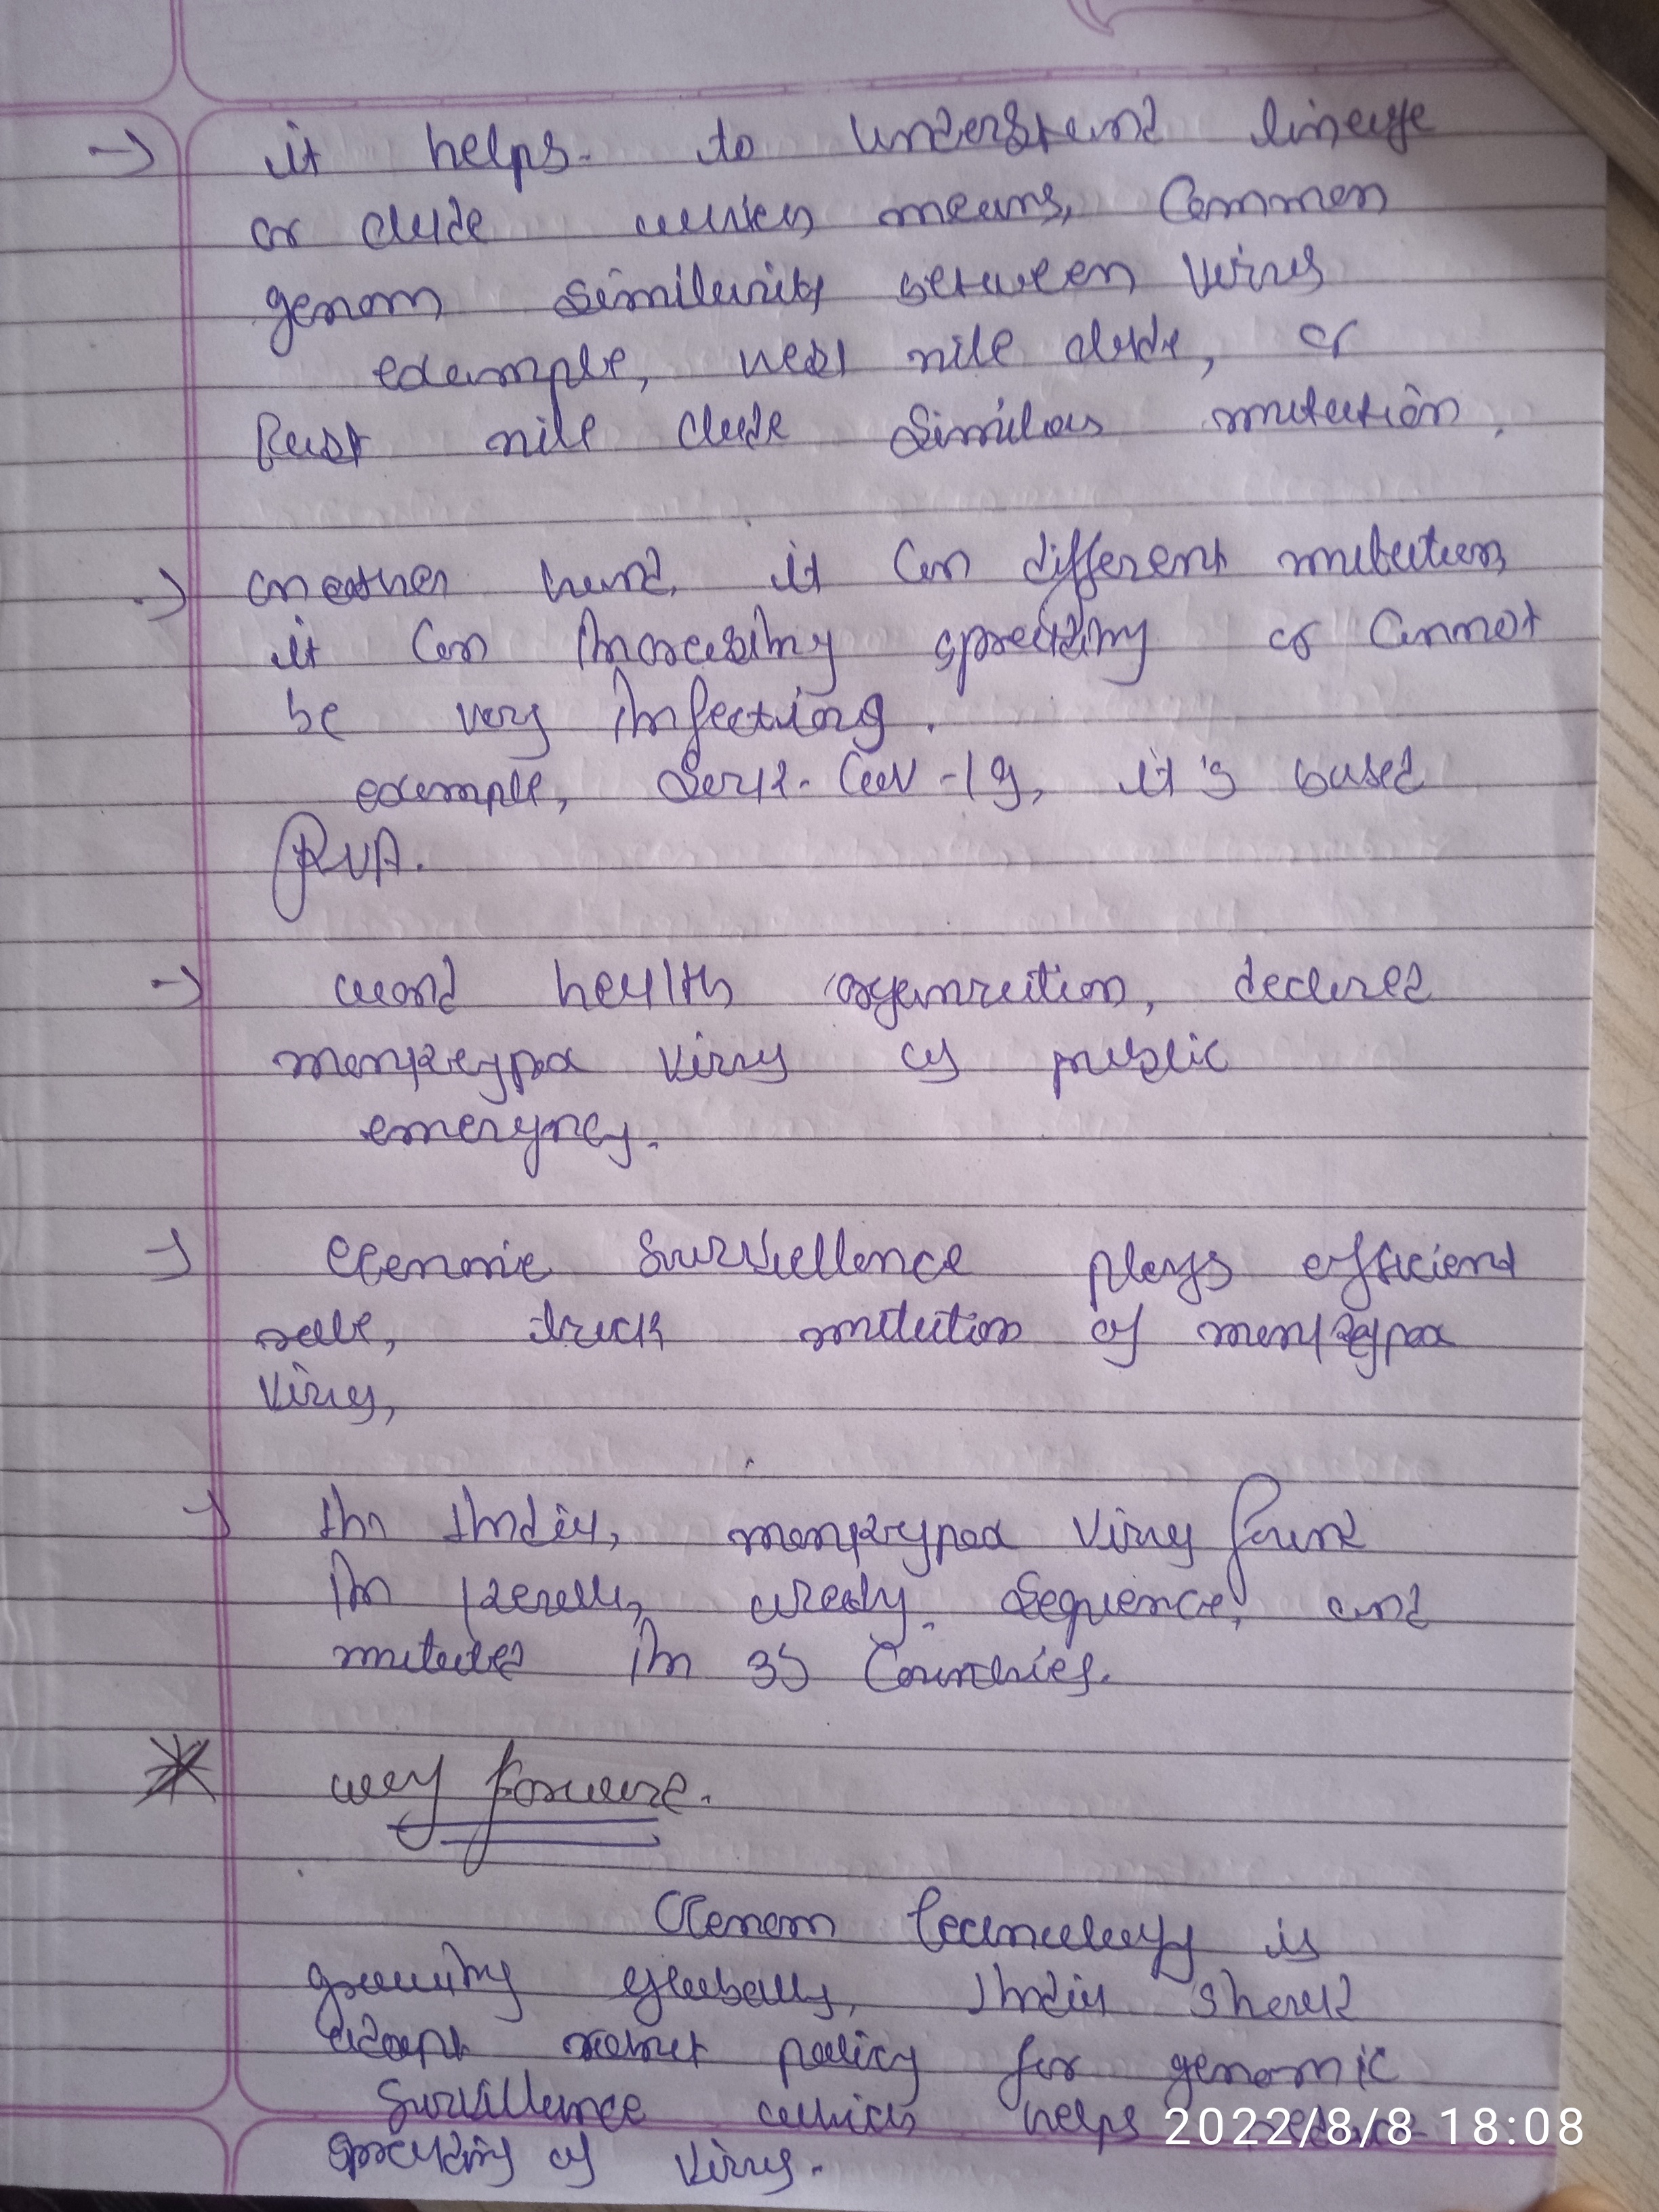 → it helps to understand lineage
or clade which means, common
genom similarity between virus
example, west nile clade, or
East nile clade similar mutation.
→ on other hand, it can different mutation,
it can increasing spreading or cannot
be very infecting.
example, -19, it's based
RNA.
→ world health organization, declared
monkeypox virus as public
emergency.
→ Genomic Surveillence plays efficient
role, track mutation of monkeypox
virus,
→ In India, monkeypox virus found
in Kerala, Sequence, and
mutated in 35 Countries.
* way forward.
Genom technology is
growing globally, India should
adopt robust policy for genomic
Survillence which helps
spreading of virus.
2022/8/8 18:08